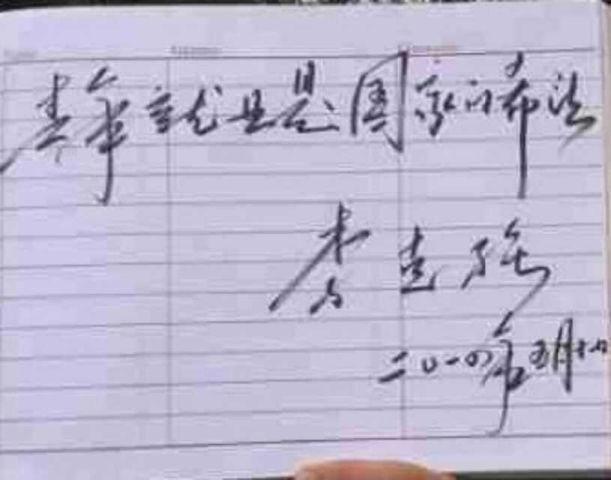 青年就业是国家的希望
李克强
二〇一四年五月